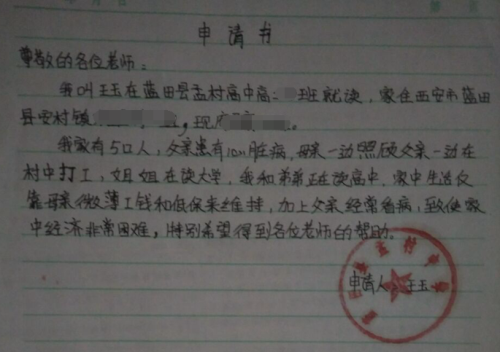 申请书
尊敬的各位老师:
我叫王玉在蓝田县孟村高中高 班就读,家住西安市蓝田
县安村镇 ,现 。
我家有5口人,父亲患有心脏病,母亲一边照顾父亲一边在
村中打工,姐姐在读大学,我和弟弟正在读高中,家中生活仅
靠母亲微薄工钱和低保来维持,加上父亲经常看病,致使家
中经济非常困难,特别希望得到各位老师的帮助。
申请人:王玉